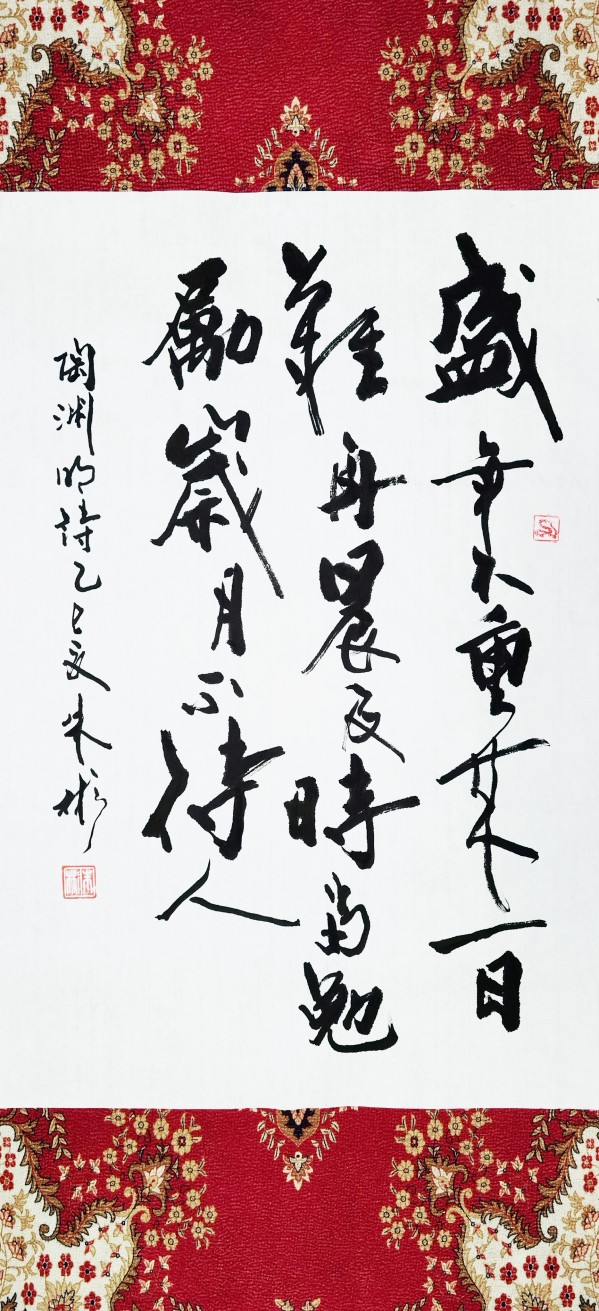 盛年不重来一日
難再晨及時當勉
勵歲月不待人
陶淵明詩乙巳夏朱彬